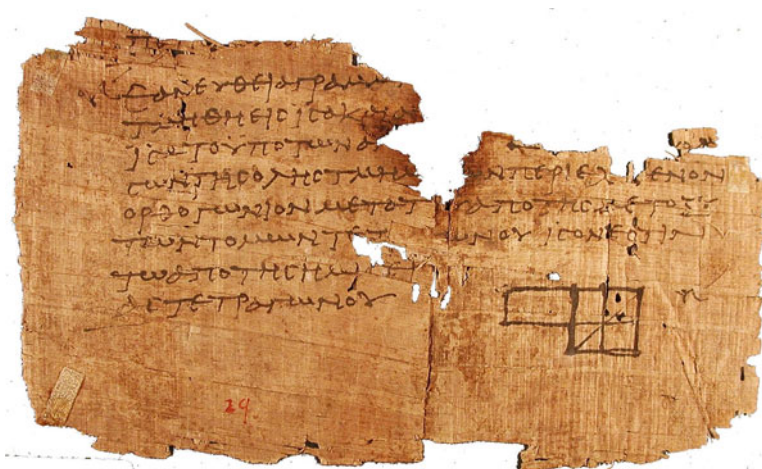 ΕΑΝΕΥΘΕΙΑΓΡΑΜΜ
ΤΜΗΘΗΕΙϹΙϹΑΚΑΙΑ
ΙϹΑΤΟΥΠΟΤΩΝΑ
ϹΩΝΤΗϹΟΛΗϹΤΜΗΜ ΩΝΠΕΡΙΕΧ ΕΝΟΝ
ΟΡΘΟΓΩΝΙΟΝΜΕΤΑΤΟΥΑΠΟΤΗϹΜΕΤΟΞΥ
ΤΩΝΤΟΜΩΝΤΕΤ ΩΝΟΥΙϹΟΝΕϹΤΙΝ
ΤΩΑΠΟΤΗϹΗΜΙϹΕΙ
ΑϹΤΕΤΡΑΓΩΝΟΥ
29